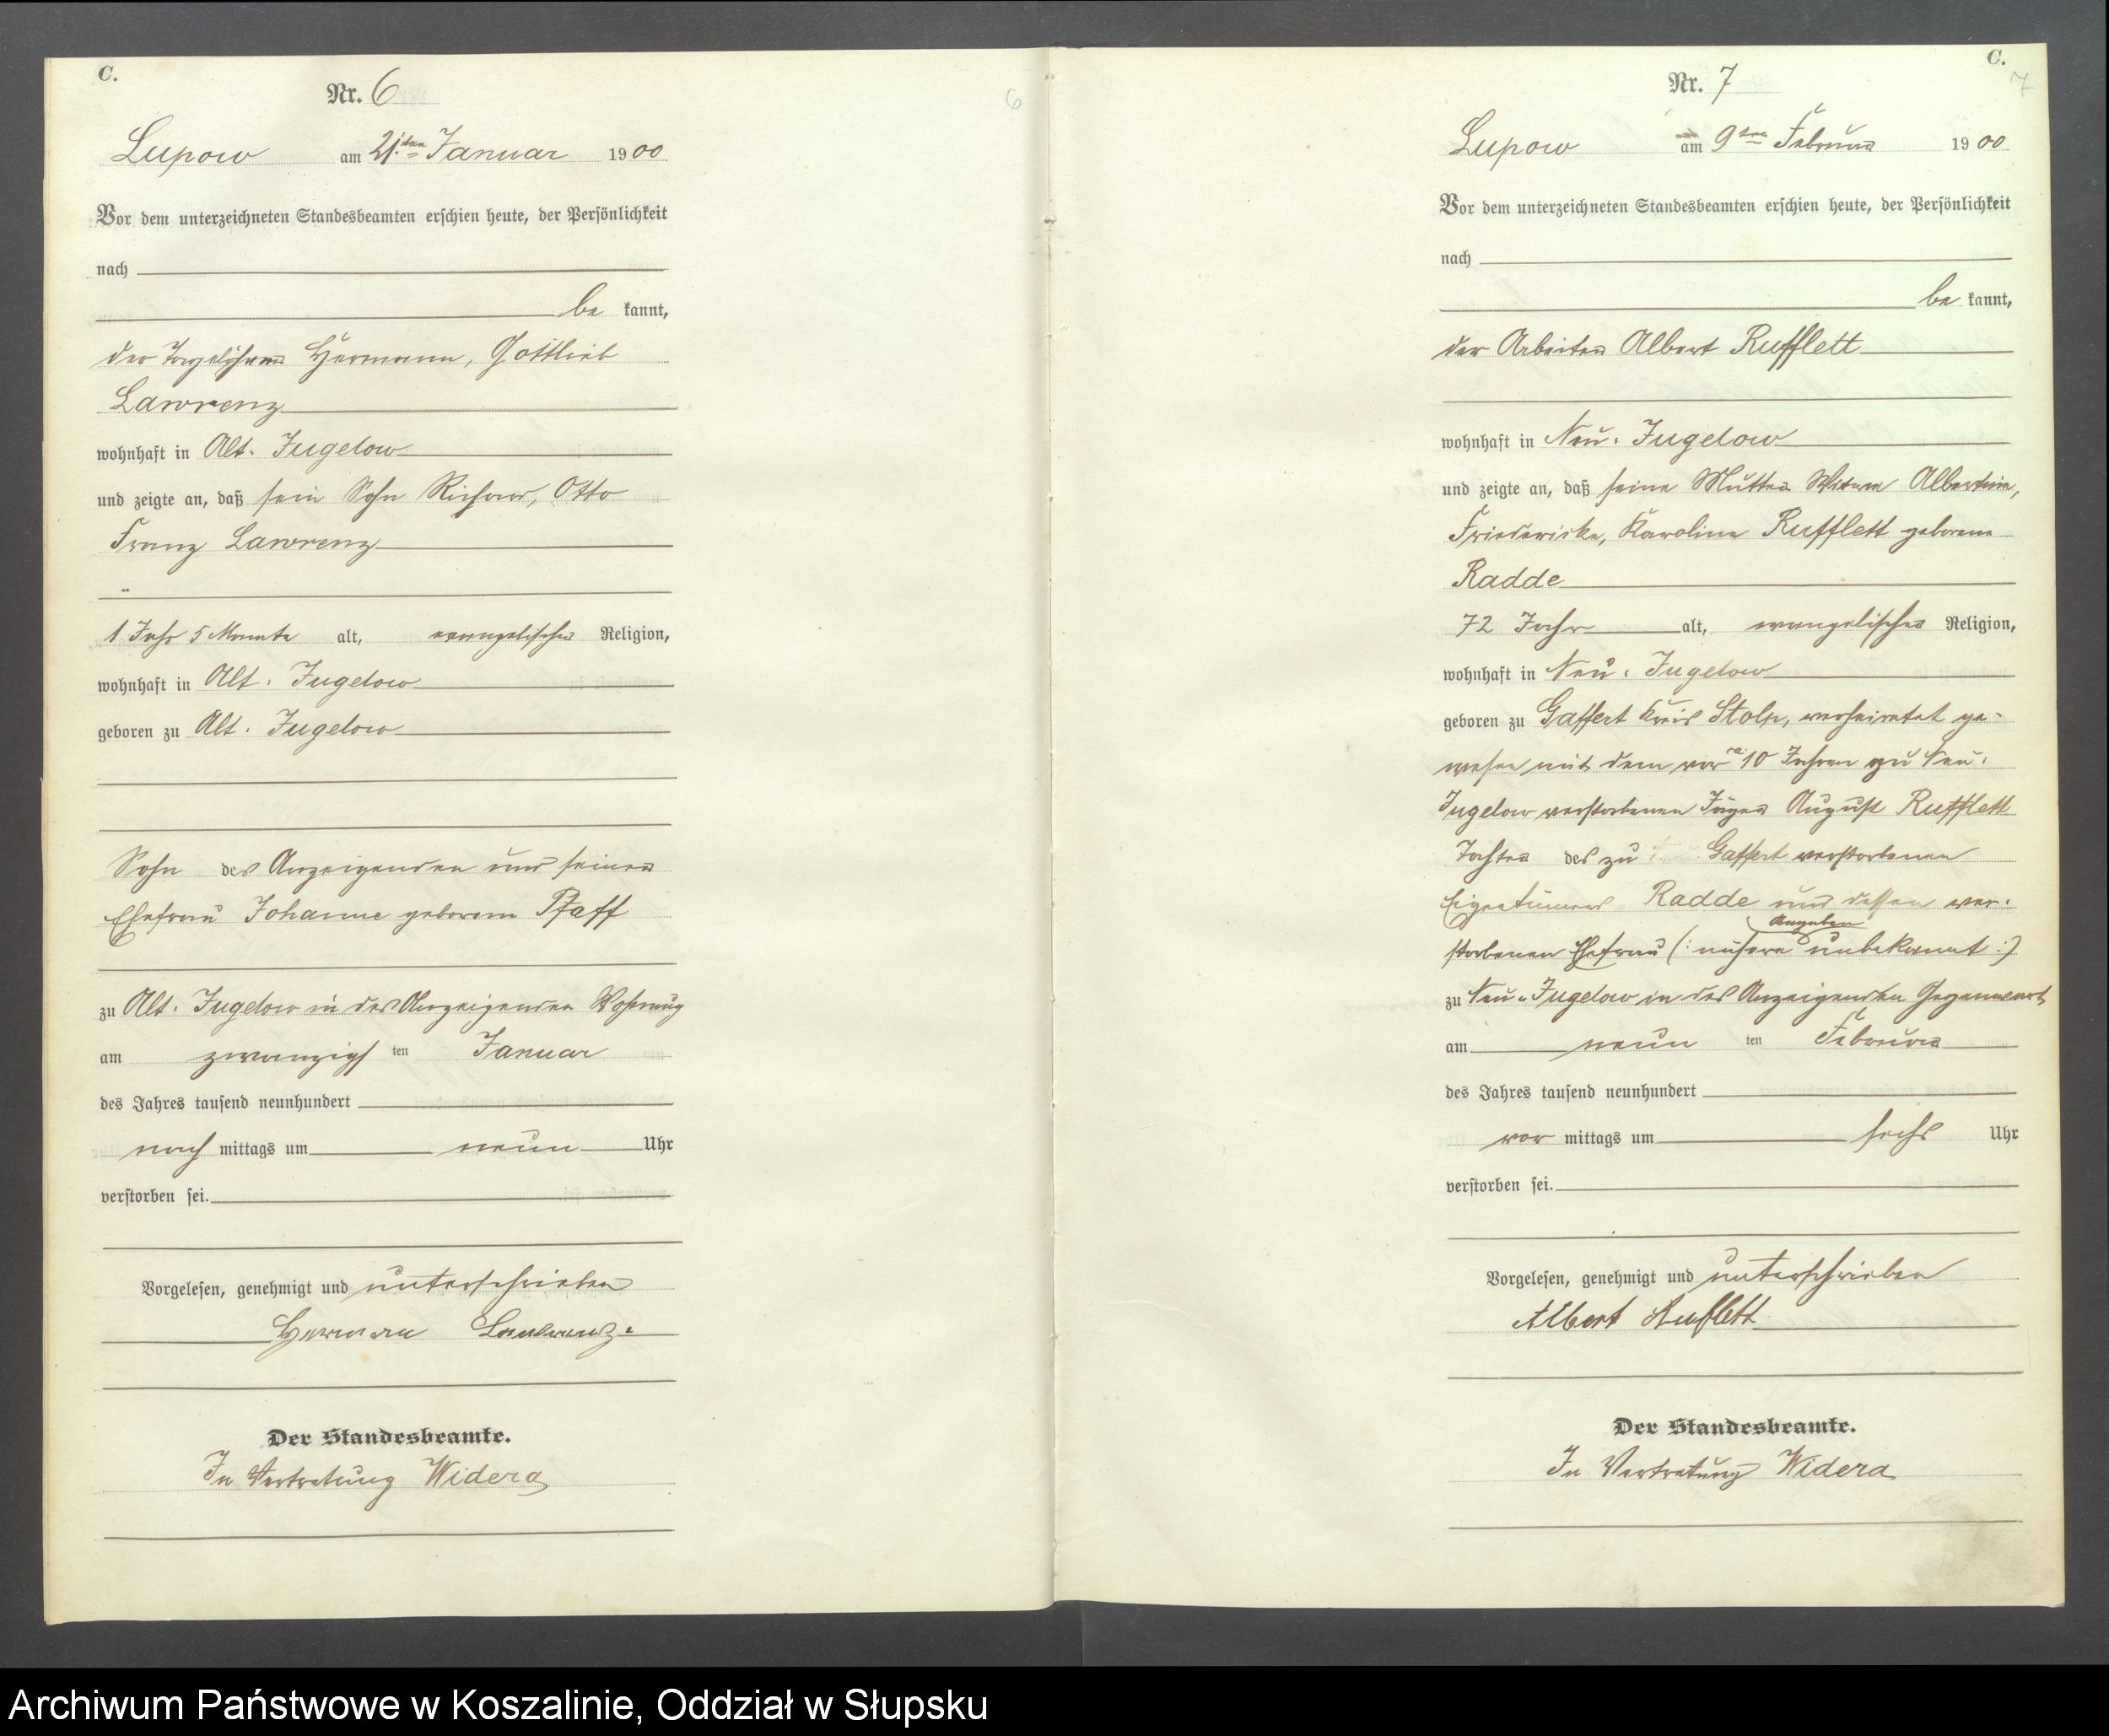 C.
Nr. 6
6
Lupow am 21ten Januar 1900
Vor dem unterzeichneten Standesbeamten erschien heute, der Persönlichkeit
nach
be kannt,
der Tagelöhner Hermann, Gottlieb
Lawrenz
wohnhaft in Alt-Jugelow
und zeigte an, daß sein Sohn Richard, Otto
Franz Lawrenz
1 Jahr 5 Monate alt, evangelischer Religion,
wohnhaft in Alt-Jugelow
geboren zu Alt-Jugelow
Sohn des Anzeigenden und seiner
Ehefrau Johanne geborene Pfaff
zu Alt-Jugelow in des Anzeigenden Wohnung
am zwanzigsten Januar
des Jahres tausend neunhundert
nach mittags um neun Uhr
verstorben sei.
Vorgelesen, genehmigt und unterschrieben
Herman Lawrenz
Der Standesbeamte.
In Vertretung Widera
C.
Nr. 7
7
Lupow am 9ten Februar 1900
Vor dem unterzeichneten Standesbeamten erschien heute, der Persönlichkeit
nach
be kannt,
der Arbeiter Albert Rufflett
wohnhaft in Neu-Jugelow
und zeigte an, daß seine Mutter Witwe Albertine,
Friedericke, Karoline Rufflett geborene
Radde
72 Jahre alt, evangelischer Religion,
wohnhaft in Neu-Jugelow
geboren zu Gaffert Kreis Stolp, verheiratet ge-
wesen mit dem vor ca. 10 Jahren zu Neu-
Jugelow verstorbenen Jäger August Rufflett
Tochter des zu Gaffert verstorbenen
Eigentümers Radde und dessen ver-
Angaben
storbenen Ehefrau (: nähere unbekannt :)
zu Neu-Jugelow in des Anzeigenden Gegenwart
am neun ten Februar
des Jahres tausend neunhundert
vor mittags um sechs Uhr
verstorben sei.
Vorgelesen, genehmigt und unterschrieben
Albert Ruflett
Der Standesbeamte.
In Vertretung Widera
Archiwum Państwowe w Koszalinie, Oddział w Słupsku